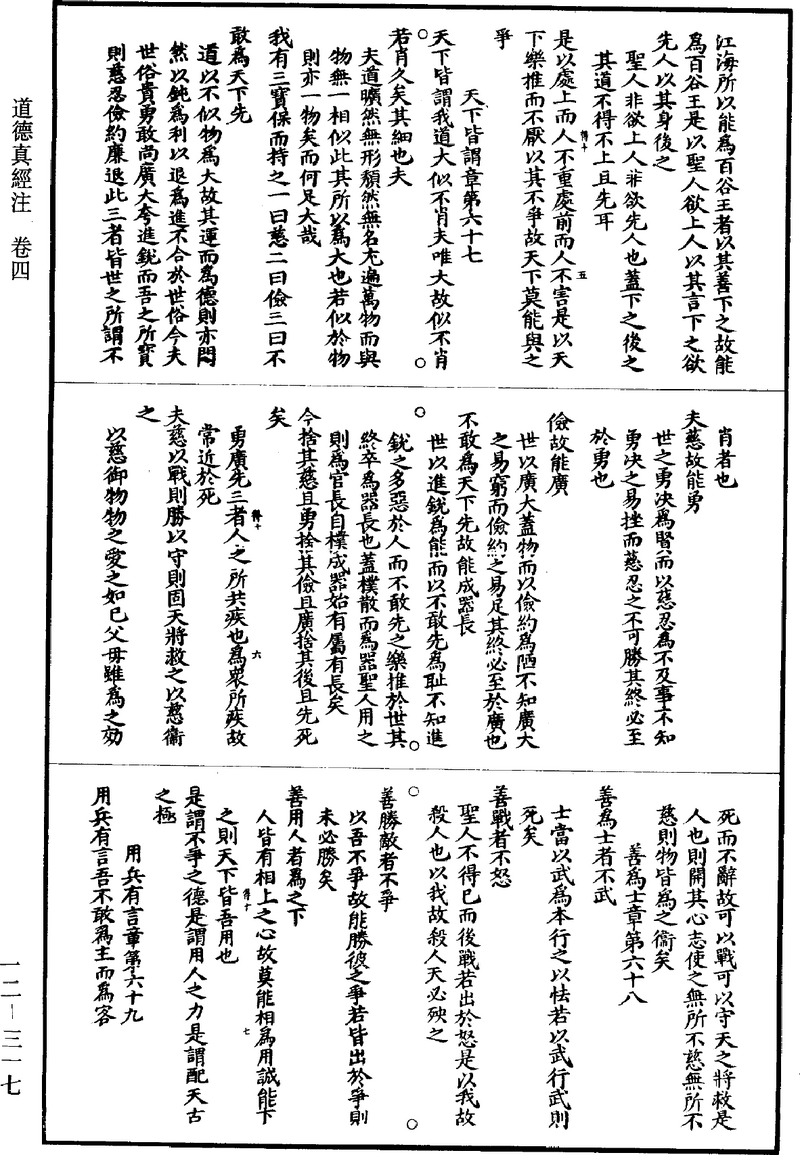 道德真經注　卷四
江海所以能為百谷王者以其善下之故能
為百谷王是以聖人欲上人以其言下之欲
先人以其身後之
聖人非欲上人非欲先人也蓋下之後之
其道不得不上且先耳
是以處上而人不重處前而人不害是以天
得十　五
下樂推而不厭以其不爭故天下莫能與之
爭
天下皆謂章第六十七
天下皆謂我道大似不肖夫唯大故似不肖
若肖久矣其細也夫
夫道曠然無形頹然無名充遍萬物而與
物無一相似此其所以為大也若似於物
則亦一物矣而何足大哉
我有三寶保而持之一曰慈二曰儉三曰不
敢為天下先
道以不似物為大故其運而為德則亦悶
然以鈍為利以退為進不合於世俗今夫
世俗貴勇敢尚廣大夸進銳而吾之所寶
則慈忍儉約廉退此三者皆世之所謂不
肖者也
夫慈故能勇
世之勇決為賢而以慈忍為不及事不知
勇決之易挫而慈忍之不可勝其終必至
於勇也
儉故能廣
世以廣大蓋物而以儉約為陋不知廣大
之易窮而儉約之易足其終必至於廣也
不敢為天下先故能成器長
世以進銳為能而以不敢先為恥不知進
銳之多惡於人而不敢先之樂推於世其
終卒為器長也蓋樸散而為器聖人用之
則為官長自樸成器始有屬有長矣
今捨其慈且勇捨其儉且廣捨其後且先死
矣
勇廣先三者人之所共疾也為衆所疾故
得十　六
常近於死
夫慈以戰則勝以守則固天將救之以慈衛
之
以慈御物物之愛之如己父母雖為之効
死而不辭故可以戰可以守天之將救是
人也則開其心志使之無所不慈無所不
慈則物皆為之衛矣
善為士章第六十八
善為士者不武
士當以武為本行之以怯若以武行武則
死矣
善戰者不怒
聖人不得已而後戰若出於怒是以我故
殺人也以我故殺人天必殃之
善勝敵者不爭
以吾不爭故能勝彼之爭若皆出於爭則
未必勝矣
善用人者為之下
人皆有相上之心故莫能相為用誠能下
得十　七
之則天下皆吾用也
是謂不爭之德是謂用人之力是謂配天古
之極
用兵有言章第六十九
用兵有言吾不敢為主而為客
一二－三一七